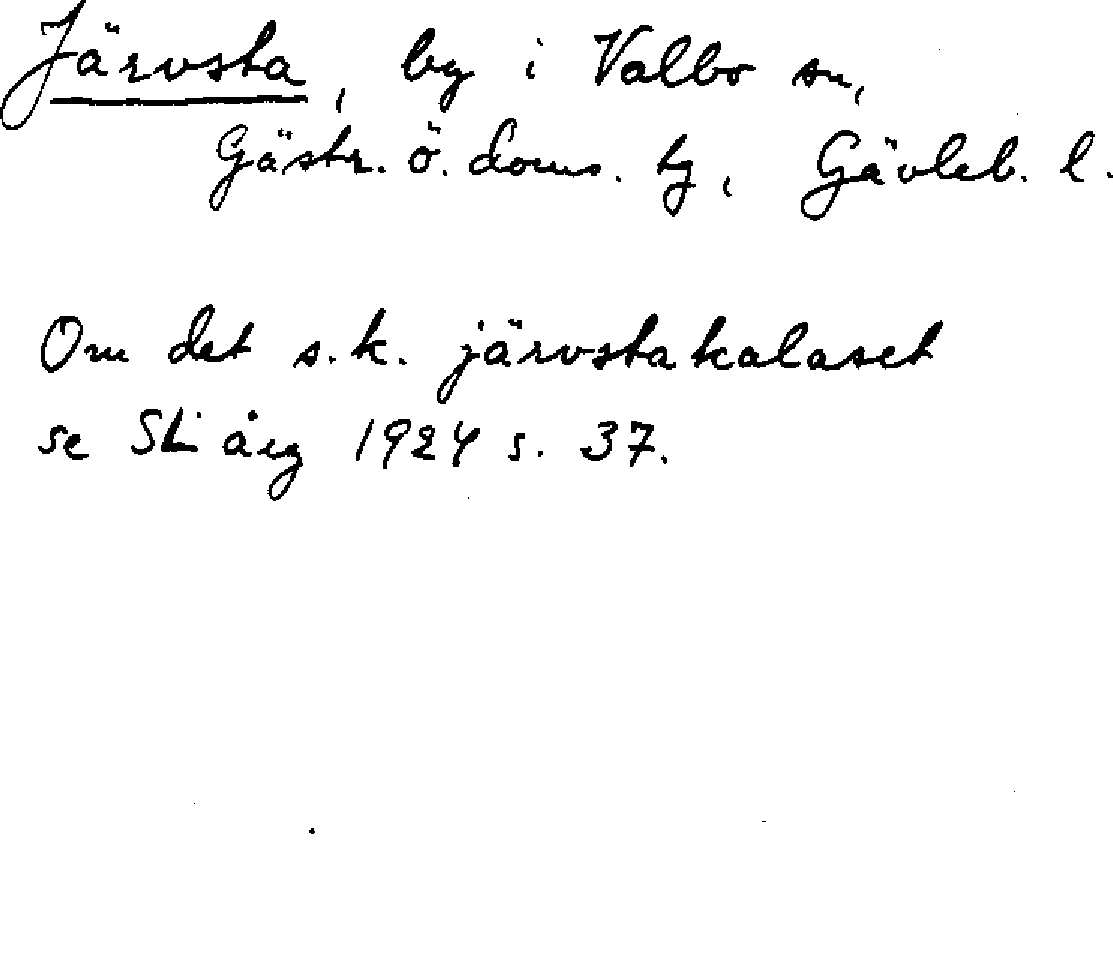 Järvsta, by i Valbo sn,
Gästr. ö. doms. tg, Gävleb. l.
Om det s.k. järvstakalaset
se SL årg 1924 s. 37.